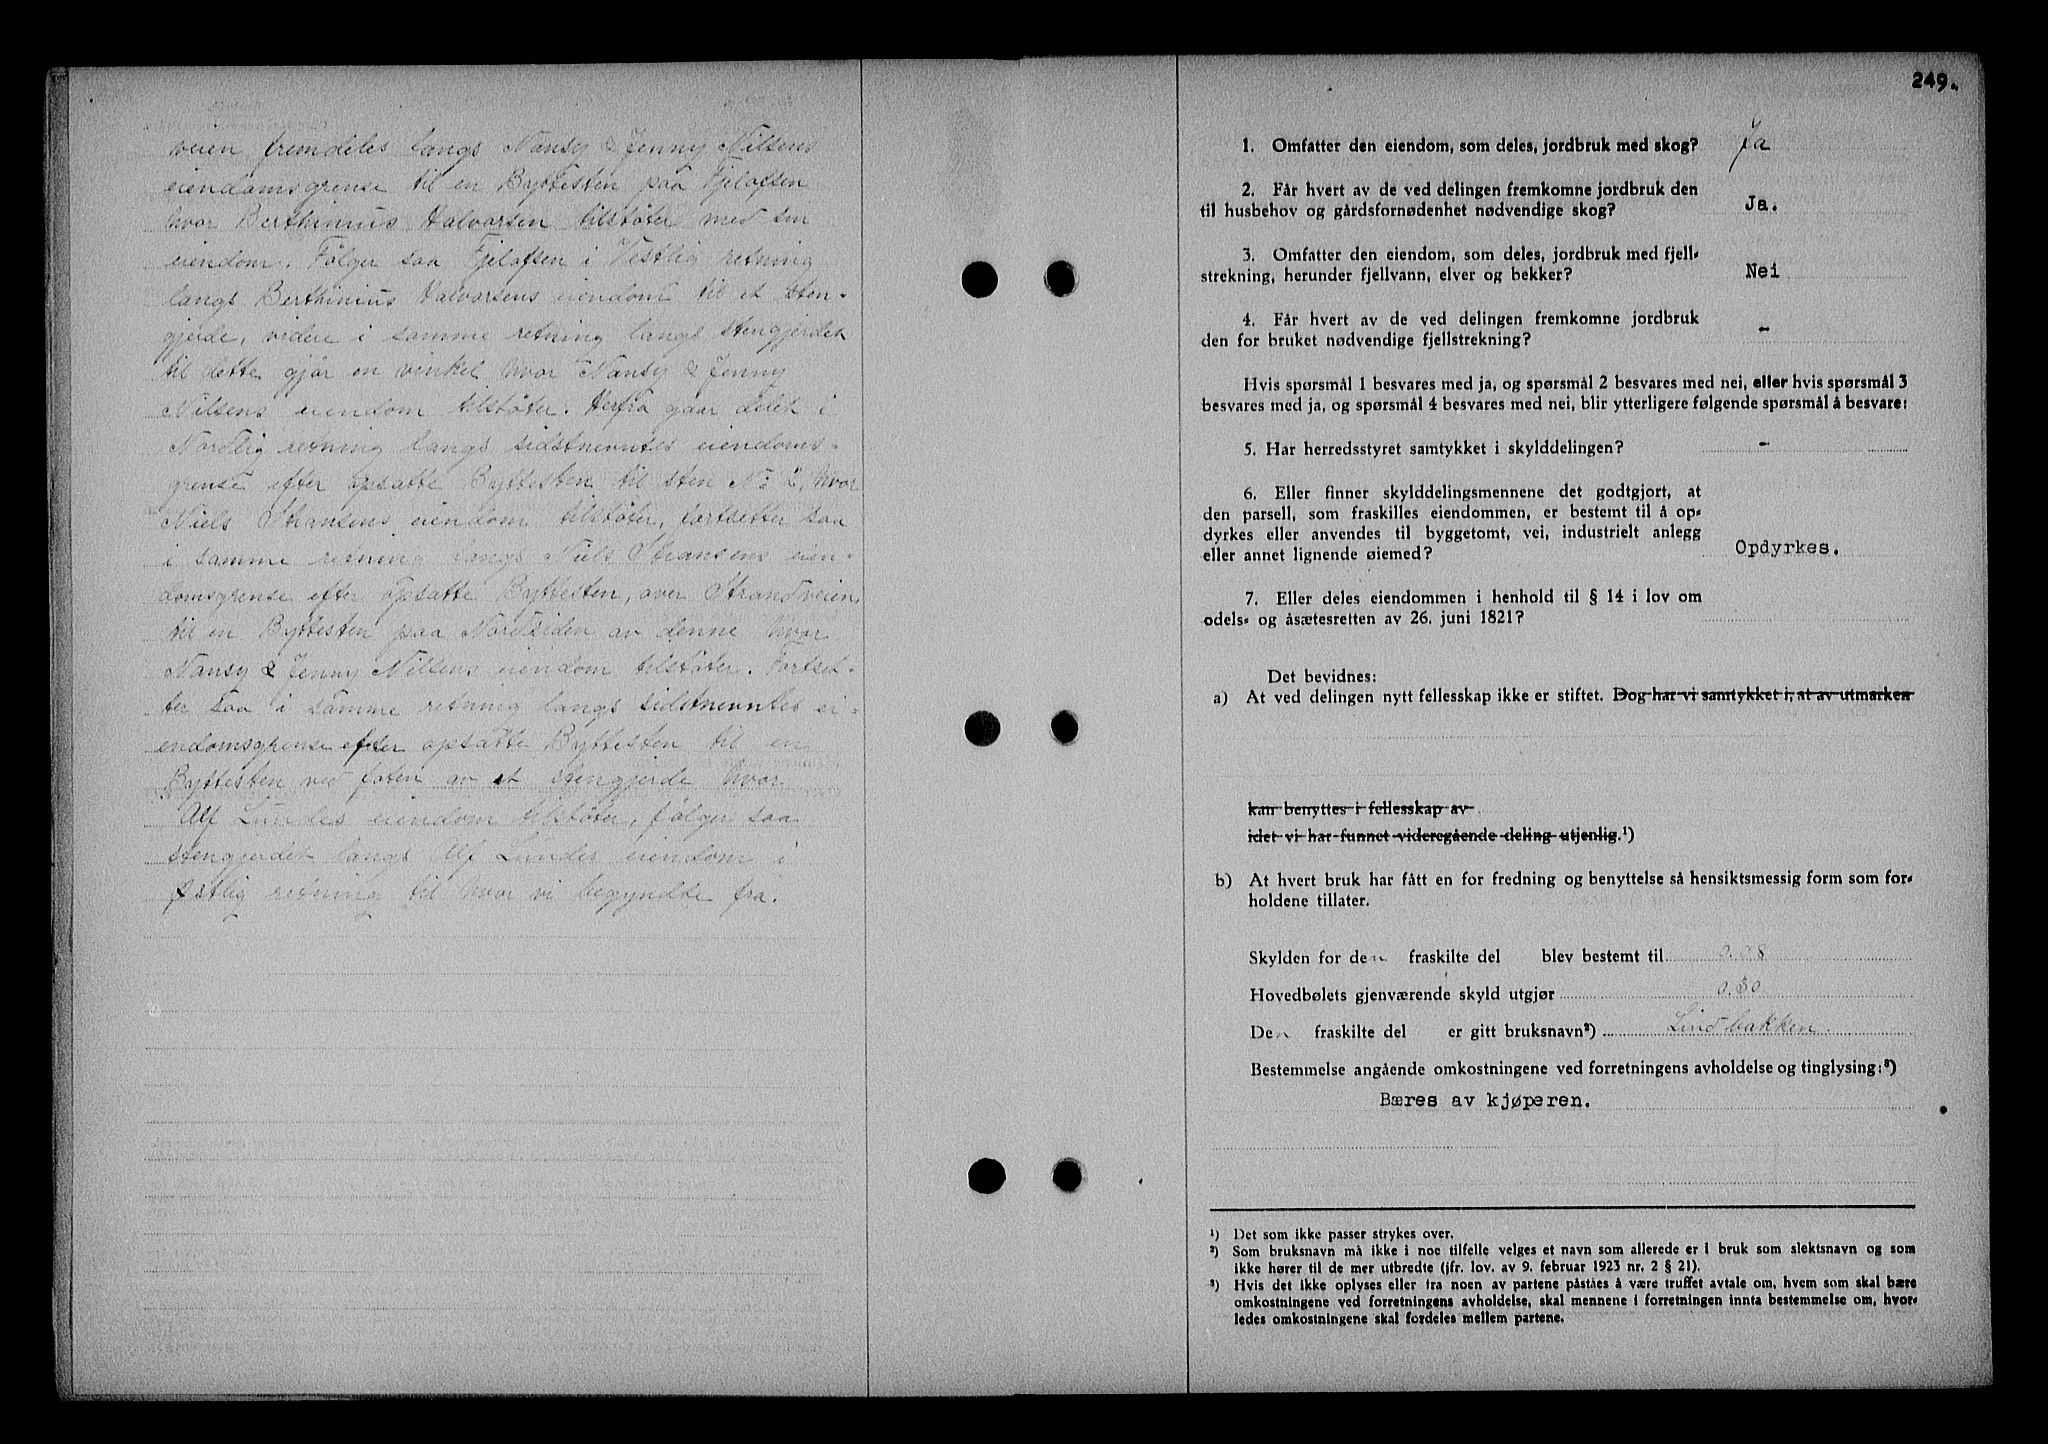 veien fremdeles langs Nansy & Jenny Nilsens
eiendomsgrense til en Byttesten paa Fjelofsen
hvor Berthinius Halvorsen tilstøter med sin
eiendom. Følger saa Fjelofsen i Vestlig retning
langs Berthinius Halvorsens eiendom til et sten-
gjerde, videre i samme retning langs stengjerdet
til dette gjør en vinkel hvor Nansy & Jenny
Nilsens eiendom tilstøter. Herfra gaar delet i
Nordlig retning langs sidstnevntes eiendoms-
grense efter opsatte Byttesten til sten No 2, hvor
Niels Johansens eiendom tilstøter, fortsetter saa
i samme retning langs Niels Johansens eien-
domsgrense efter opsatte Byttesten, over Strandveien,
til en Byttesten paa Nordsiden av denne hvor
Nansy & Jenny Nilsens eiendom tilstøter. Fortset-
ter saa i samme retning langs sidstnevntes ei-
endomsgrense efter opsatte Byttesten til en
Byttesten ved foten av et stengjerde hvor
Alf Lundes eiendom tilstøter, følger saa
stengjerdet langs Alf Lundes eiendom i
østlig retning til hvor vi begyndte fra.
249.
1. Omfatter den eiendom, som deles, jordbruk med skog? Ja
2. Får hvert av de ved delingen fremkomne jordbruk den
til husbehov og gårdsfornødenhet nødvendige skog? Ja.
3. Omfatter den eiendom, som deles, jordbruk med fjell-
strekning, herunder fjellvann, elver og bekker? Nei
4. Får hvert av de ved delingen fremkomne jordbruk
den for bruket nødvendige fjellstrekning? -
Hvis spørsmål 1 besvares med ja, og spørsmål 2 besvares med nei, eller hvis spørsmål 3
besvares med ja, og spørsmål 4 besvares med nei, blir ytterligere følgende spørsmål å besvare:
5. Har herredsstyret samtykket i skylddelingen? -
6. Eller finner skylddelingsmennene det godtgjort, at
den parsell, som fraskilles eiendommen, er bestemt til å op-
dyrkes eller anvendes til byggetomt, vei, industrielt anlegg
eller annet lignende øiemed? Opdyrkes.
7. Eller deles eiendommen i henhold til § 14 i lov om
odels- og åsætesretten av 26. juni 1821?
Det bevidnes:
a) At ved delingen nytt fellesskap ikke er stiftet. Dog har vi samtykket i, at av utmarken
kan benyttes i fellesskap av
idet vi har funnet videregående deling utjenlig.¹)
b) At hvert bruk har fått en for fredning og benyttelse så hensiktsmessig form som for-
holdene tillater.
Skylden for den fraskilte del blev bestemt til 0.08
Hovedbølets gjenværende skyld utgjør 0.80
Den fraskilte del er gitt bruksnavn²) Lindbakken.
Bestemmelse angående omkostningene ved forretningens avholdelse og tinglysing:³)
Bæres av kjøperen.
¹) Det som ikke passer strykes over.
²) Som bruksnavn må ikke i noe tilfelle velges et navn som allerede er i bruk som slektsnavn og som
ikke hører til de mer utbredte (jfr. lov. av 9. februar 1923 nr. 2 § 21).
³) Hvis det ikke oplyses eller fra noen av partene påståes å være truffet avtale om, hvem som skal bære
omkostningene ved forretningens avholdelse, skal mennene i forretningen innta bestemmelse om, hvor-
ledes omkostningene skal fordeles mellem partene.